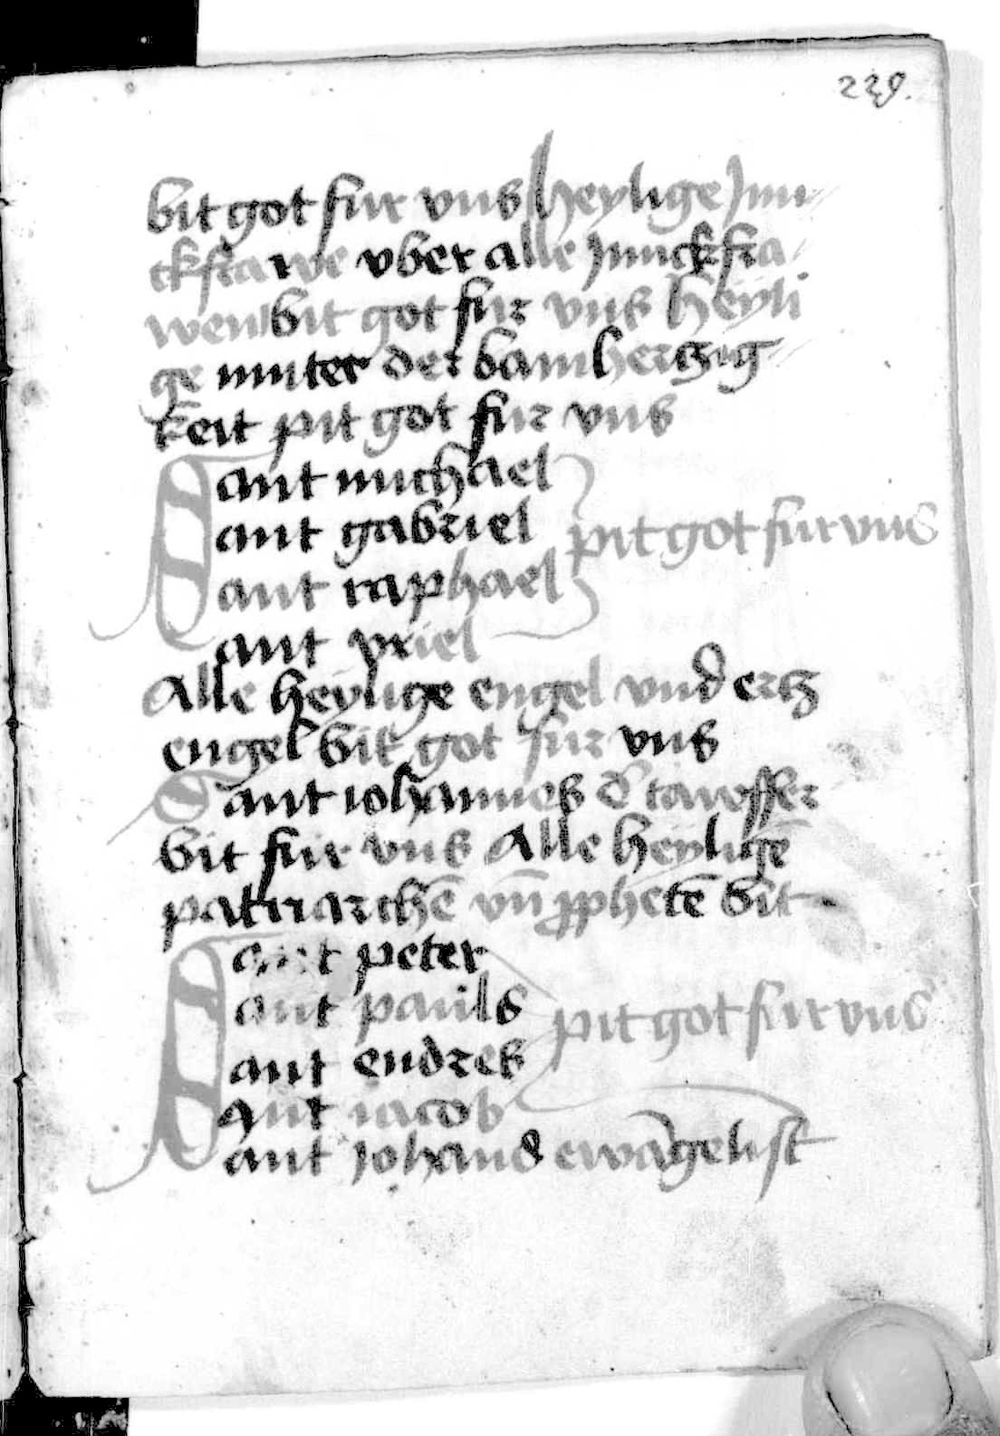 239.
bit got fur vns heylige Jun
ckfrawe vber alle junckfra
wen bit got fur vns heyli
ge muter der bamhertzig
keit pit got fur vns
Sant michael
Sant gabriel pit got fur vns
Sant raphael
Sant vriel
Alle heylige engel vnd ertz
engel bit got fur vns
Sant iohannes d' taveffer
bit fur vns Alle heyligē
patriarchē vn̄ ꝓphetē bit
Sant peter
Sant pauls pit got fur vns
Sant endres
Sant iacob
Sant johans ewāgelist